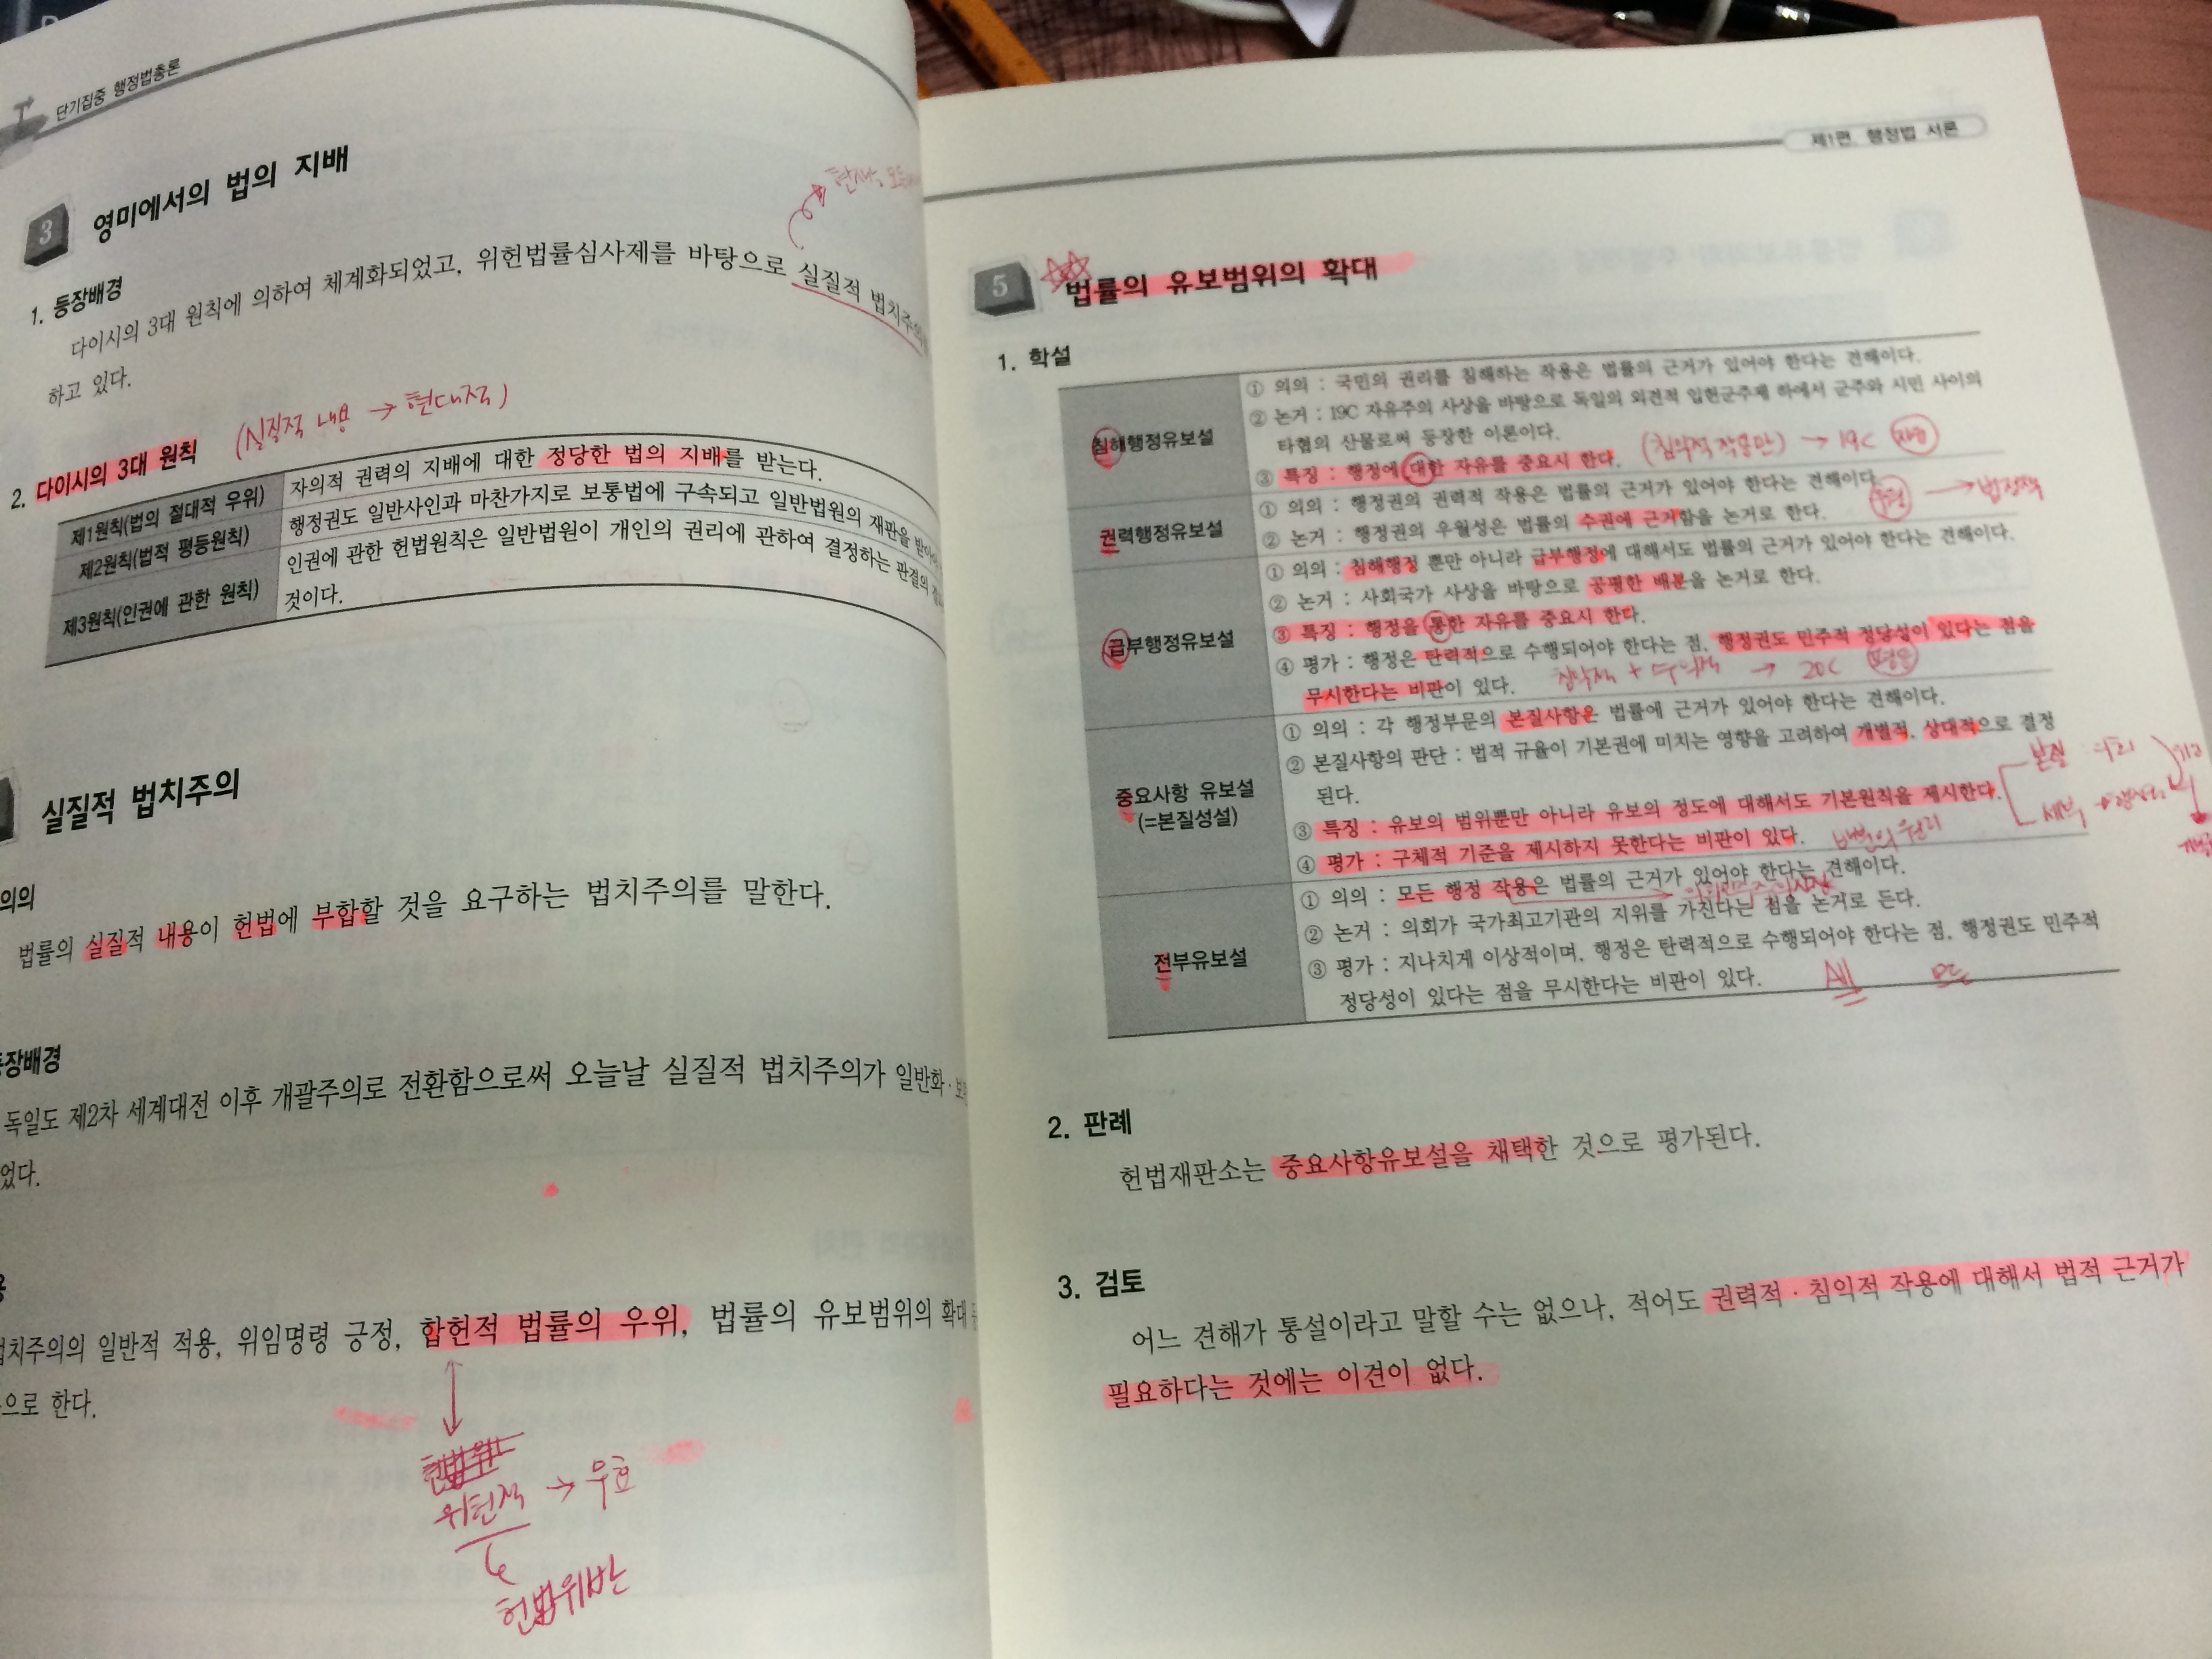 단기집중 행정법총론
3 영미에서의 법의 지배
1. 등장배경
다이시의 3대 원칙에 의하여 체계화되었고, 위헌법률심사제를 바탕으로 실질적 법치주의
하고 있다.
2. 다이시의 3대 원칙 (실질적 내용 → 현대적)
제1원칙(법의 절대적 우위) 자의적 권력의 지배에 대한 정당한 법의 지배를 받는다.
제2원칙(법적 평등원칙) 행정권도 일반사인과 마찬가지로 보통법에 구속되고 일반법원의 재판을 받아
제3원칙(인권에 관한 원칙) 인권에 관한 헌법원칙은 일반법원이 개인의 권리에 관하여 결정하는 판결의
것이다.
실질적 법치주의
의의
법률의 실질적 내용이 헌법에 부합할 것을 요구하는 법치주의를 말한다.
등장배경
독일도 제2차 세계대전 이후 개괄주의로 전환함으로써 오늘날 실질적 법치주의가 일반화·보
었다.
법치주의의 일반적 적용, 위임명령 긍정, 합헌적 법률의 우위, 법률의 유보범위의 확대
으로 한다.
위헌적 → 무효
헌법위반
제1편 행정법 서론
5 법률의 유보범위의 확대
1. 학설
침해행정유보설
① 의의 : 국민의 권리를 침해하는 작용은 법률의 근거가 있어야 한다는 견해이다.
② 논거 : 19C 자유주의 사상을 바탕으로 독일의 외견적 입헌군주제 하에서 군주와 시민 사이의
타협의 산물로써 등장한 이론이다.
③ 특징 : 행정에 대한 자유를 중요시 한다. (침익적 작용만) → 19C 자유
권력행정유보설
① 의의 : 행정권의 권력적 작용은 법률의 근거가 있어야 한다는 견해이다.
② 논거 : 행정권의 우월성은 법률의 수권에 근거함을 논거로 한다.
급부행정유보설
① 의의 : 침해행정 뿐만 아니라 급부행정에 대해서도 법률의 근거가 있어야 한다는 견해이다.
② 논거 : 사회국가 사상을 바탕으로 공평한 배분을 논거로 한다.
③ 특징 : 행정을 통한 자유를 중요시 한다.
④ 평가 : 행정은 탄력적으로 수행되어야 한다는 점, 행정권도 민주적 정당성이 있다는 점을
무시한다는 비판이 있다.
→ 20C 평등
중요사항 유보설
(=본질성설)
① 의의 : 각 행정부문의 본질사항은 법률에 근거가 있어야 한다는 견해이다.
② 본질사항의 판단 : 법적 규율이 기본권에 미치는 영향을 고려하여 개별적, 상대적으로 결정
된다.
③ 특징 : 유보의 범위뿐만 아니라 유보의 정도에 대해서도 기본원칙을 제시한다.
④ 평가 : 구체적 기준을 제시하지 못한다는 비판이 있다.
전부유보설
① 의의 : 모든 행정 작용은 법률의 근거가 있어야 한다는 견해이다.
② 논거 : 의회가 국가최고기관의 지위를 가진다는 점을 논거로 든다.
③ 평가 : 지나치게 이상적이며, 행정은 탄력적으로 수행되어야 한다는 점, 행정권도 민주적
정당성이 있다는 점을 무시한다는 비판이 있다.
2. 판례
헌법재판소는 중요사항유보설을 채택한 것으로 평가된다.
3. 검토
어느 견해가 통설이라고 말할 수는 없으나, 적어도 권력적·침익적 작용에 대해서 법적 근거가
필요하다는 것에는 이견이 없다.